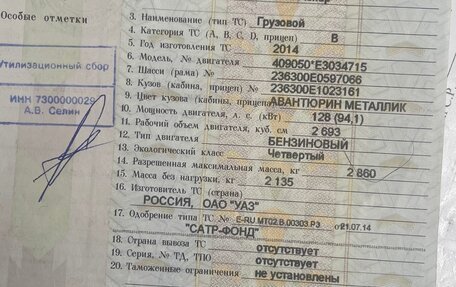 Особые отметки
3. Наименование (тип ТС) Грузовой
4. Категория ТС (A, B, C, D, прицеп) B
5. Год изготовления ТС 2014
6. Модель, № двигателя 409050*E3034715
7. Шасси (рама) № 236300E0597066
8. Кузов (кабина, прицеп) № 236300E1023161
9. Цвет кузова (кабины, прицепа) АВАНТЮРИН МЕТАЛЛИК
10. Мощность двигателя, л. с. (кВт) 128 (94,1)
11. Рабочий объем двигателя, куб. см 2 693
12. Тип двигателя БЕНЗИНОВЫЙ
13. Экологический класс Четвертый
14. Разрешенная максимальная масса, кг 2 860
15. Масса без нагрузки, кг 2 135
16. Изготовитель ТС (страна)
РОССИЯ, ОАО "УАЗ"
17. Одобрение типа ТС № E-RU.МТ02.B.00303.Р3 от 21.07.14
"САТР-ФОНД"
18. Страна вывоза ТС отсутствует
19. Серия, № ТД, ТПО отсутствует
20. Таможенные ограничения не установлены
Утилизационный сбор
ИНН 7300000029
А.В. Селин